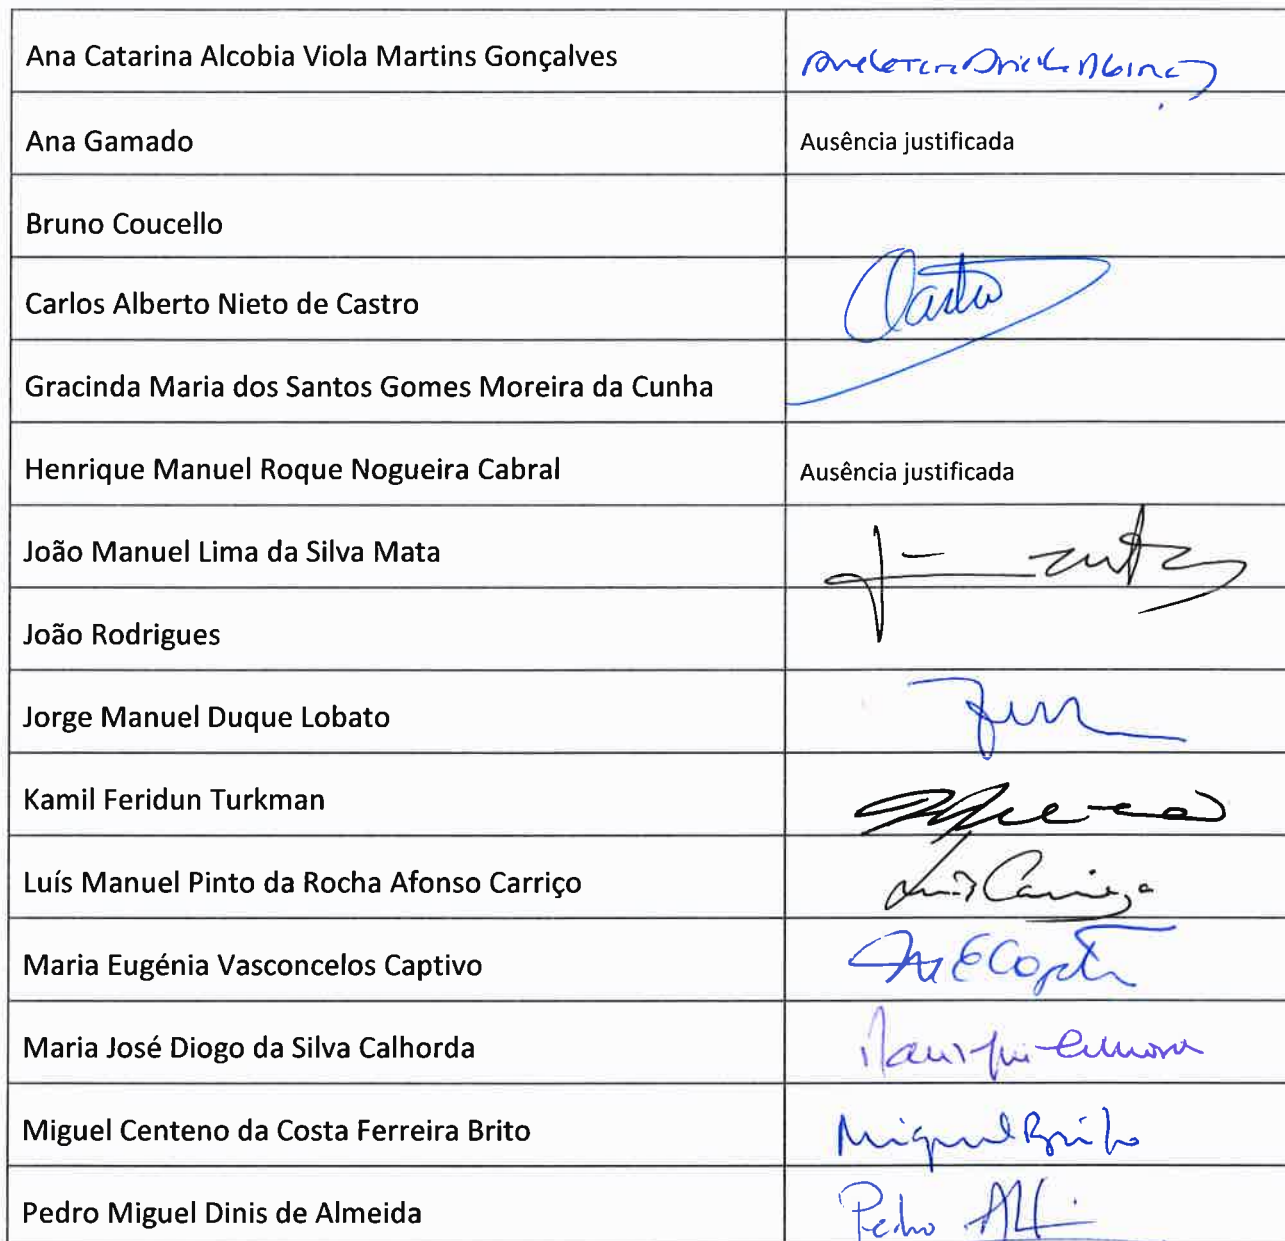 Ana Catarina Alcobia Viola Martins Gonçalves
Ana Gamado Ausência justificada
Bruno Coucello
Carlos Alberto Nieto de Castro Castro
Gracinda Maria dos Santos Gomes Moreira da Cunha
Henrique Manuel Roque Nogueira Cabral Ausência justificada
João Manuel Lima da Silva Mata
João Rodrigues
Jorge Manuel Duque Lobato
Kamil Feridun Turkman
Luís Manuel Pinto da Rocha Afonso Carriço Luís Carriço
Maria Eugénia Vasconcelos Captivo
Maria José Diogo da Silva Calhorda
Miguel Centeno da Costa Ferreira Brito Miguel Brito
Pedro Miguel Dinis de Almeida Pedro